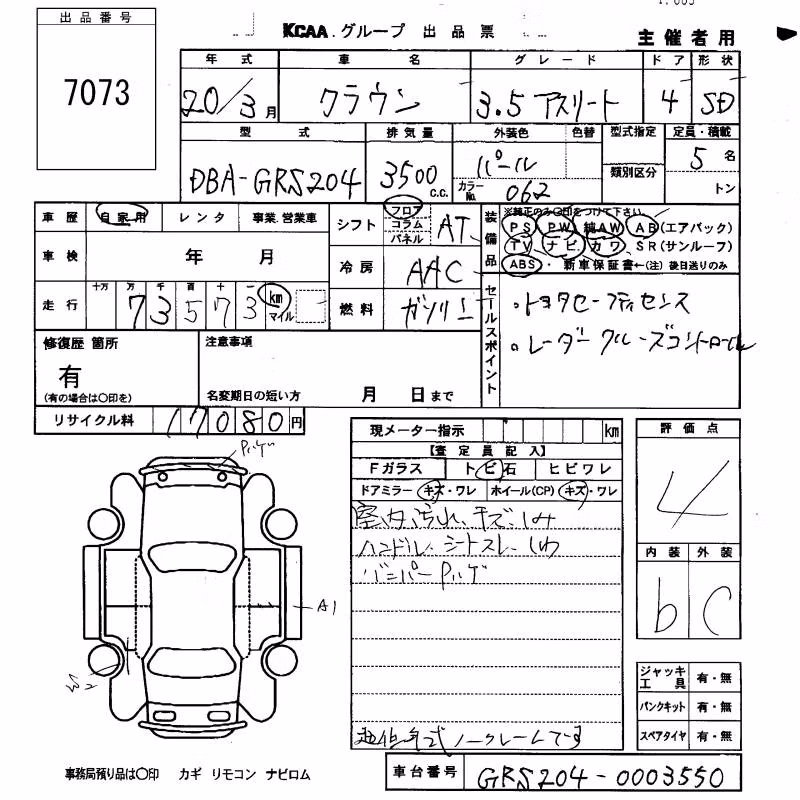 出品番号
7073
KCAA.グループ 出品票
主催者用
年式 車名 グレード ドア 形状
20/3月 クラウン 3.5 アスリート 4 SD
型式 排気量 外装色 色替 型式指定 定員・積載
DBA-GRS204 3500 c.c. パール 類別区分 5 名
カラーNo. 062 トン
車歴 自家用 レンタ 事業.営業車
シフト フロア コラム パネル AT
装備品 ※純正のみ○印をつけて下さい
PS PW 純AW AB(エアバック)
TV ナビ カワ SR(サンルーフ)
ABS・新車保証書←(注)後日送りのみ
車検 年 月
冷房 AAC
走行 十万 万 千 百 十 一
73573 km マイル
燃料 ガソリン
セールスポイント
・トヨタセーフティセンス
・レーダークルーズコントロール
修復歴 箇所
有
(有の場合は○印を)
注意事項
名変期日の短い方 月 日まで
リサイクル料 17080円
現メーター指示 km
【査定員記入】
Fガラス トビ石 ヒビワレ
ドアミラー キズ・ワレ ホイール(CP) キズ・ワレ
室内汚れ、キズ、しみ
ハンドル、シートスレ、しわ
バンパーPハゲ
ノークレームです
評価点
4
内装 外装
b C
Pハゲ
A1
W2
ジャッキ工具 有・無
パンクキット 有・無
スペアタイヤ 有・無
事務局預り品は○印 カギ リモコン ナビロム
車台番号 GRS204-0003550